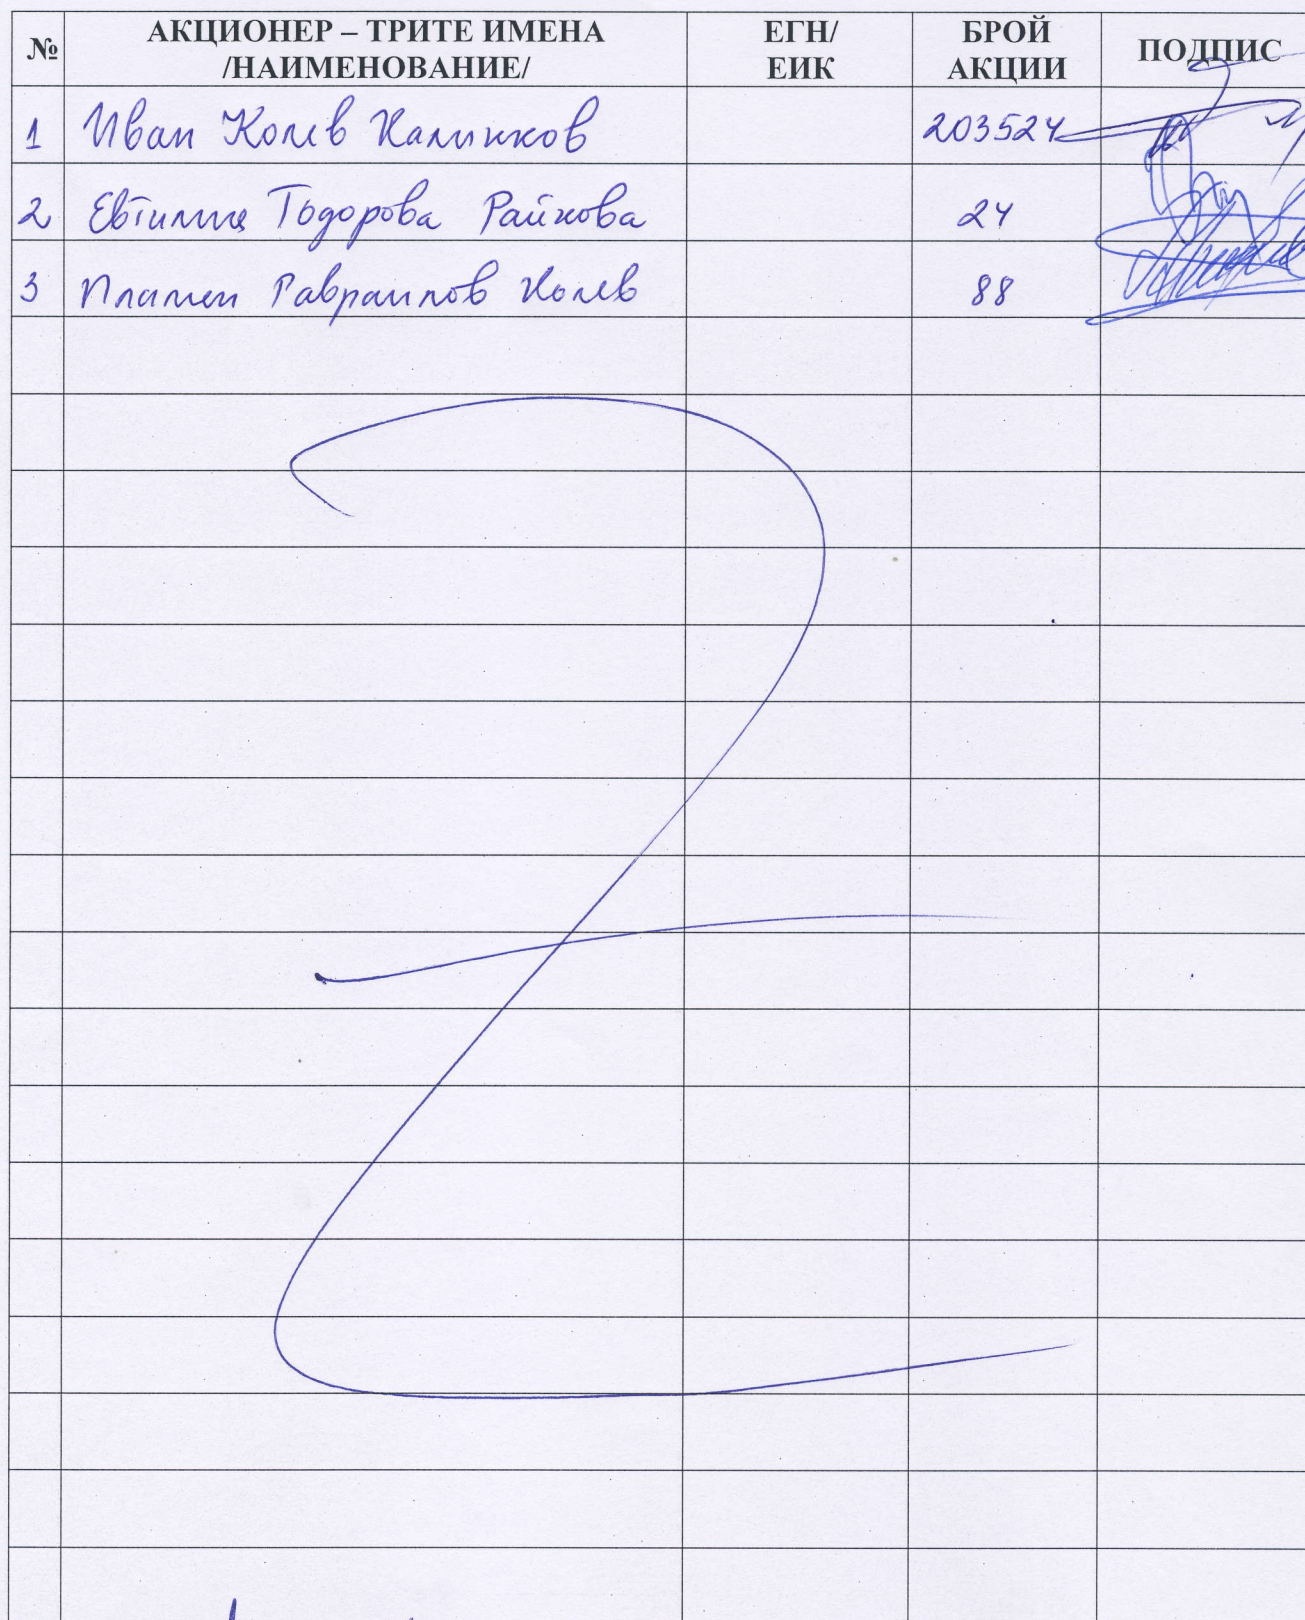 № АКЦИОНЕР – ТРИТЕ ИМЕНА /НАИМЕНОВАНИЕ/ ЕГН/ ЕИК БРОЙ АКЦИИ ПОДПИС
1 Иван Колев Калинков 203524
2 Евтилия Тодорова Райкова 24
3 Пламен Гавраилов Колев 88